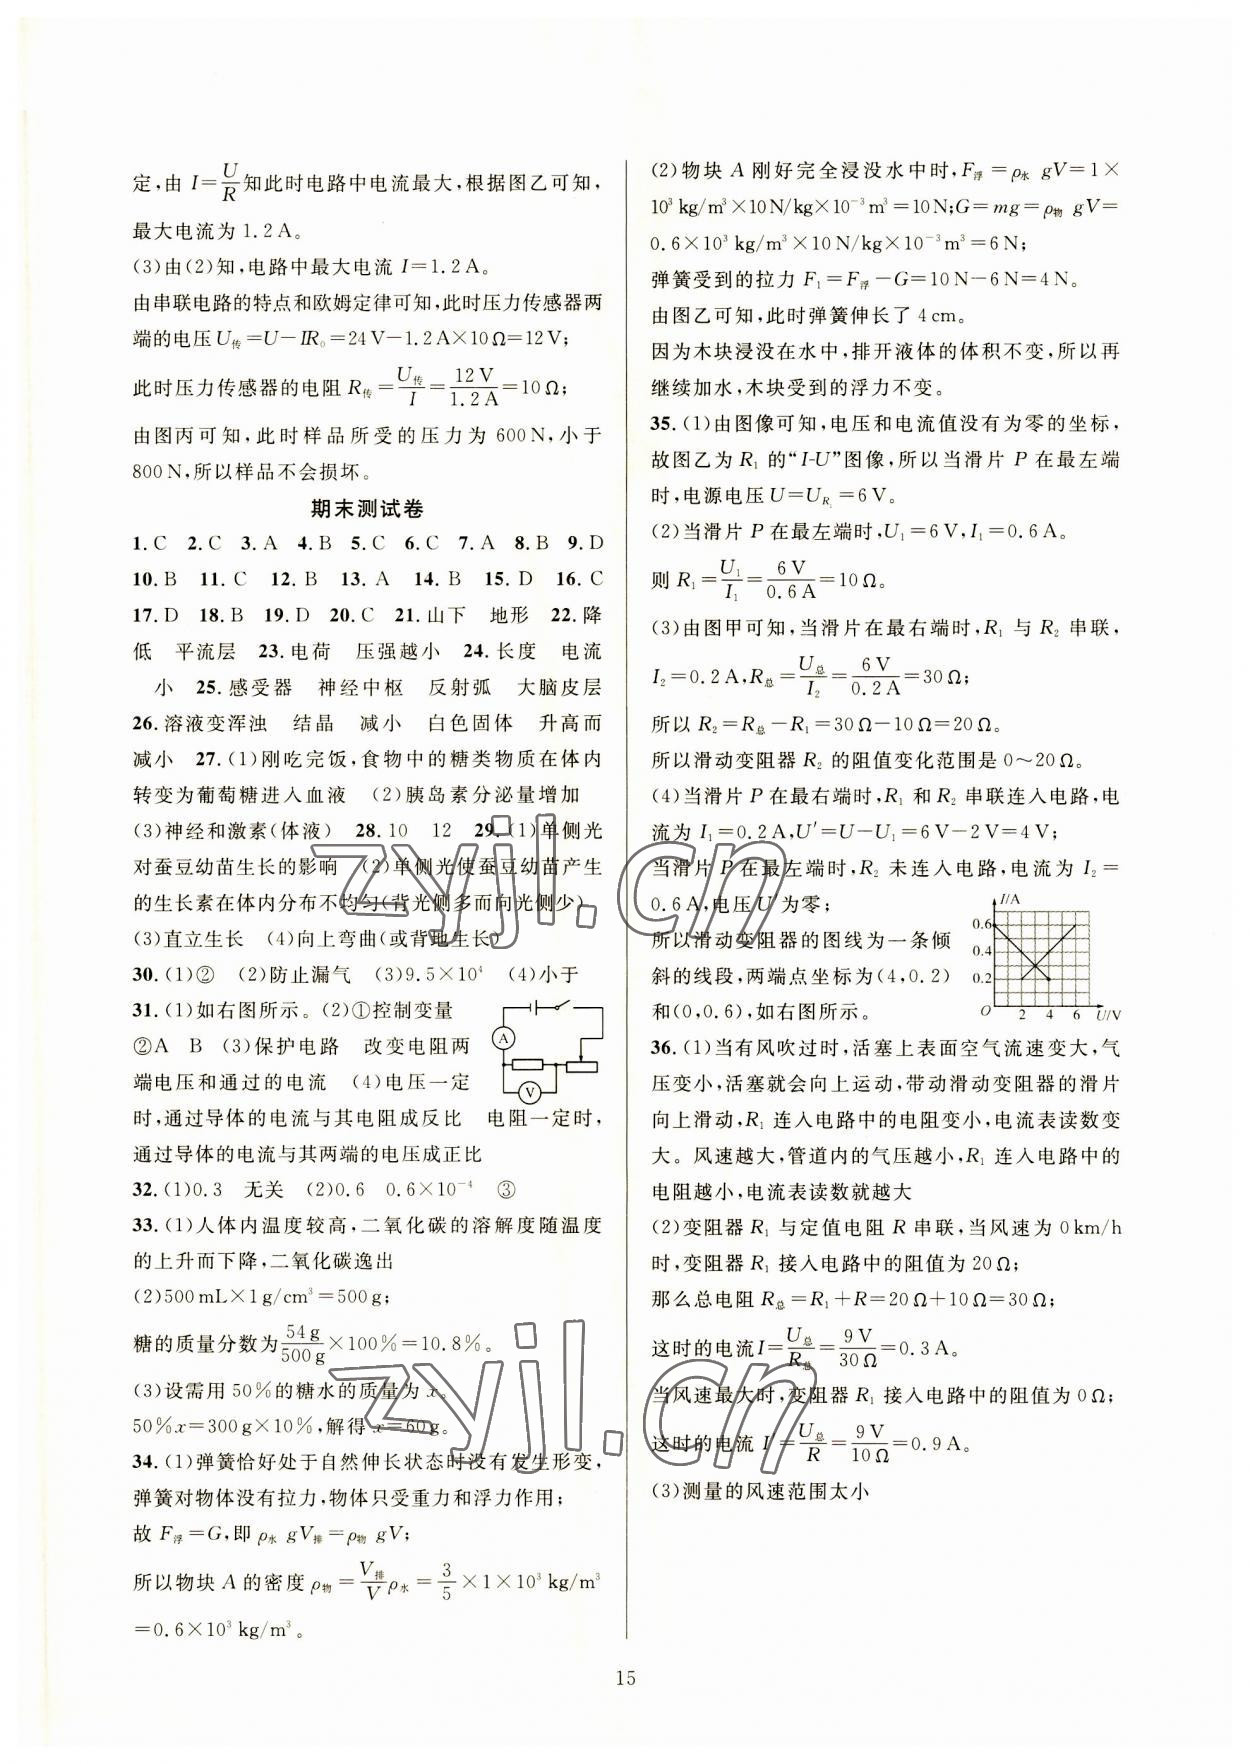 定,由 I=U/R知此时电路中电流最大,根据图乙可知,
最大电流为 1.2A。
(3)由(2)知,电路中最大电流 I=1.2A。
由串联电路的特点和欧姆定律可知,此时压力传感器两
端的电压 U传=U-IR₀=24V-1.2A×10Ω=12V;
此时压力传感器的电阻 R传=U传/I=12V/1.2A=10Ω;
由图丙可知,此时样品所受的压力为 600N,小于
800N,所以样品不会损坏。
期末测试卷
1.C 2.C 3.A 4.B 5.C 6.C 7.A 8.B 9.D
10.B 11.C 12.B 13.A 14.B 15.D 16.C
17.D 18.B 19.D 20.C 21.山下 地形 22.降
低 平流层 23.电荷 压强越小 24.长度 电流
小 25.感受器 神经中枢 反射弧 大脑皮层
26.溶液变浑浊 结晶 减小 白色固体 升高而
减小 27.(1)刚吃完饭,食物中的糖类物质在体内
转变为葡萄糖进入血液 (2)胰岛素分泌量增加
(3)神经和激素(体液) 28.10 12 29.(1)单侧光
对蚕豆幼苗生长的影响 (2)单侧光使蚕豆幼苗产生
的生长素在体内分布不均匀(背光侧多而向光侧少)
(3)直立生长 (4)向上弯曲(或背地生长)
30.(1)② (2)防止漏气 (3)9.5×10⁴ (4)小于
31.(1)如右图所示。(2)①控制变量
②A B (3)保护电路 改变电阻两
端电压和通过的电流 (4)电压一定
时,通过导体的电流与其电阻成反比 电阻一定时,
通过导体的电流与其两端的电压成正比
A
V
32.(1)0.3 无关 (2)0.6 0.6×10⁻⁴ ③
33.(1)人体内温度较高,二氧化碳的溶解度随温度
的上升而下降,二氧化碳逸出
(2)500mL×1g/cm³=500g;
糖的质量分数为54g/500g×100%=10.8%。
(3)设需用 50%的糖水的质量为 x。
50%x=300g×10%,解得 x=60g。
34.(1)弹簧恰好处于自然伸长状态时没有发生形变,
弹簧对物体没有拉力,物体只受重力和浮力作用;
故 F浮=G,即 ρ水 gV排=ρ物 gV;
所以物块 A 的密度 ρ物=V排/V ρ水=3/5×1×10³kg/m³
=0.6×10³kg/m³。
(2)物块 A 刚好完全浸没水中时,F浮=ρ水 gV=1×
10³kg/m³×10N/kg×10⁻³m³=10N;G=mg=ρ物 gV=
0.6×10³kg/m³×10N/kg×10⁻³m³=6N;
弹簧受到的拉力 F₁=F浮-G=10N-6N=4N。
由图乙可知,此时弹簧伸长了 4cm。
因为木块浸没在水中,排开液体的体积不变,所以再
继续加水,木块受到的浮力不变。
35.(1)由图像可知,电压和电流值没有为零的坐标,
故图乙为 R₁ 的“I-U”图像,所以当滑片 P 在最左端
时,电源电压 U=U_R₁=6V。
(2)当滑片 P 在最左端时,U₁=6V,I₁=0.6A。
则 R₁=U₁/I₁=6V/0.6A=10Ω。
(3)由图甲可知,当滑片在最右端时,R₁ 与 R₂ 串联,
I₂=0.2A,R总=U总/I₂=6V/0.2A=30Ω;
所以 R₂=R总-R₁=30Ω-10Ω=20Ω。
所以滑动变阻器 R₂ 的阻值变化范围是 0~20Ω。
(4)当滑片 P 在最右端时,R₁ 和 R₂ 串联连入电路,电
流为 I₁=0.2A,U′=U-U₁=6V-2V=4V;
当滑片 P 在最左端时,R₂ 未连入电路,电流为 I₂=
0.6A,电压 U′为零;
所以滑动变阻器的图线为一条倾
斜的线段,两端点坐标为(4,0.2)
和(0,0.6),如右图所示。
I/A
0.6
0.4
0.2
O 2 4 6 U/V
36.(1)当有风吹过时,活塞上表面空气流速变大,气
压变小,活塞就会向上运动,带动滑动变阻器的滑片
向上滑动,R₁ 连入电路中的电阻变小,电流表读数变
大。风速越大,管道内的气压越小,R₁ 连入电路中的
电阻越小,电流表读数就越大
(2)变阻器 R₁ 与定值电阻 R 串联,当风速为 0km/h
时,变阻器 R₁ 接入电路中的阻值为 20Ω;
那么总电阻 R总=R₁+R=20Ω+10Ω=30Ω;
这时的电流I=U总/R总=9V/30Ω=0.3A。
当风速最大时,变阻器 R₁ 接入电路中的阻值为 0Ω;
这时的电流 I′=U总/R=9V/10Ω=0.9A。
(3)测量的风速范围太小
15
zyjl.cn
zyjl.cn